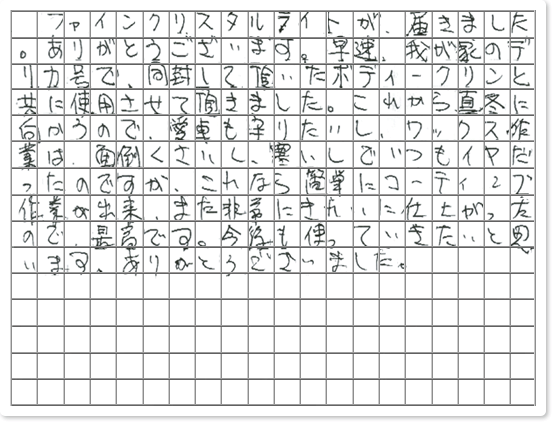 ファインクリスタルライトが、届きました
。ありがとうございます。早速、我が家のデ
リカ号で、同封して頂いたボディークリンと
共に使用させて頂きました。これから真冬に
向かうので、愛車も守りたいし、ワックス作
業は、面倒くさいし、寒いしでいつもイヤだ
ったのですが、これなら簡単にコーティング
作業が出来、また非常にきれいに仕上がった
ので、最高です。今後も使っていきたいと思
います。ありがとうございました。